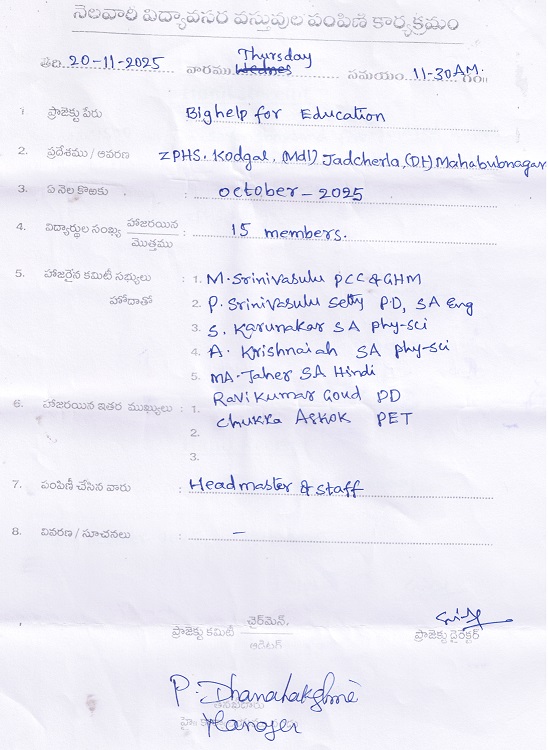 నెలవారి విద్యావసర వస్తువుల పంపిణి కార్యక్రమం
తేది. 20-11-2025 వారము Thursday సమయం. 11-30 A.M. గం
1 ప్రాజెక్టు పేరు Bighelp for Education
2. ప్రదేశము / ఆవరణ ZPHS. Kodgal, (Mdl) Jadcherla, (Dt) Mahabubnagar
3. ఏ నెల కొఱకు : October - 2025
4. విద్యార్థుల సంఖ్య హాజరయిన / మొత్తము : 15 members.
5. హాజరైన కమిటీ సభ్యులు : 1. M. Srinivasulu PCC & GHM
హోదాతో 2. P. Srinivasulu Setty P.D, SA Eng
3. S. Karunakar SA Phy-sci
4. A. Krishnaiah SA Phy-sci
5. MA. Taher SA Hindi
Ravi Kumar Goud PD
6. హాజరయిన ఇతర ముఖ్యులు : 1. Chukka Ashok PET
2.
3.
7. పంపిణీ చేసిన వారు : Headmaster & Staff
8. వివరణ / సూచనలు : -
ప్రాజెక్టు కమిటీ చైర్మెన్, / ఆడిటర్
ప్రాజెక్టు డైరెక్టర్
P. Dhanalakshmi
Manager